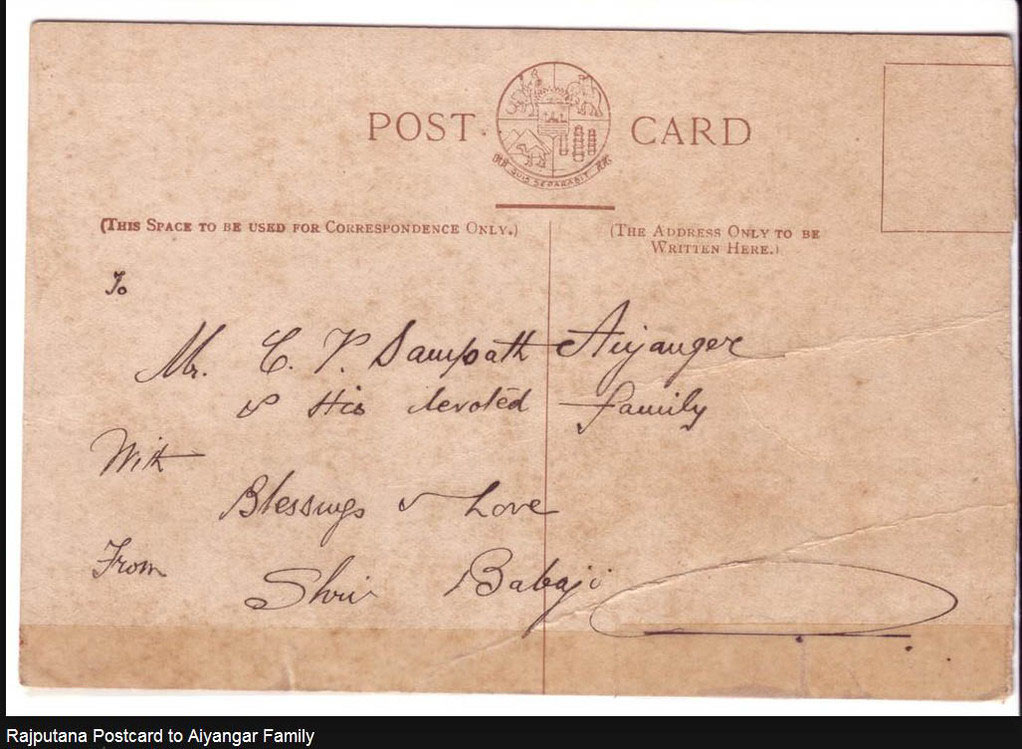 POST CARD
QUIS SEPARABIT
(THIS SPACE TO BE USED FOR CORRESPONDENCE ONLY.)
(THE ADDRESS ONLY TO BE
WRITTEN HERE.)
To
Mr. C. V. Sampath Aiyanger
& His devoted family
With
Blessings & Love
From
Shri Babaji
Rajputana Postcard to Aiyangar Family